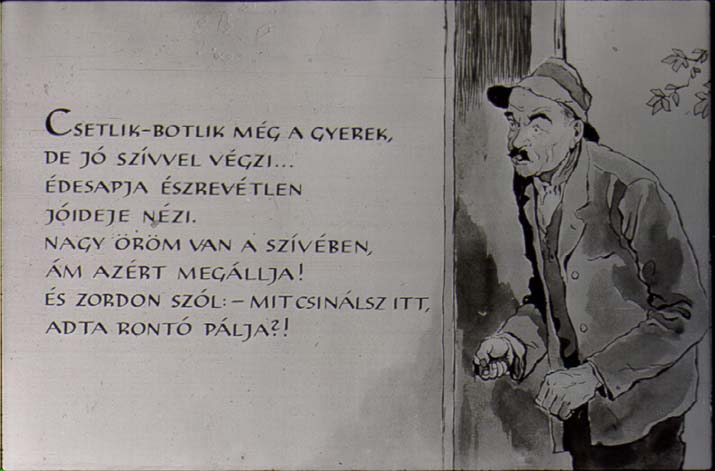 CSETLIK-BOTLIK MÉG A GYEREK,
DE JÓ SZÍVVEL VÉGZI...
ÉDESAPJA ÉSZREVÉTLEN
JÓIDEJE NÉZI.
NAGY ÖRÖM VAN A SZÍVÉBEN,
ÁM AZÉRT MEGÁLLJA!
ÉS ZORDON SZÓL: – MIT CSINÁLSZ ITT,
ADTA RONTÓ PÁLJA?!